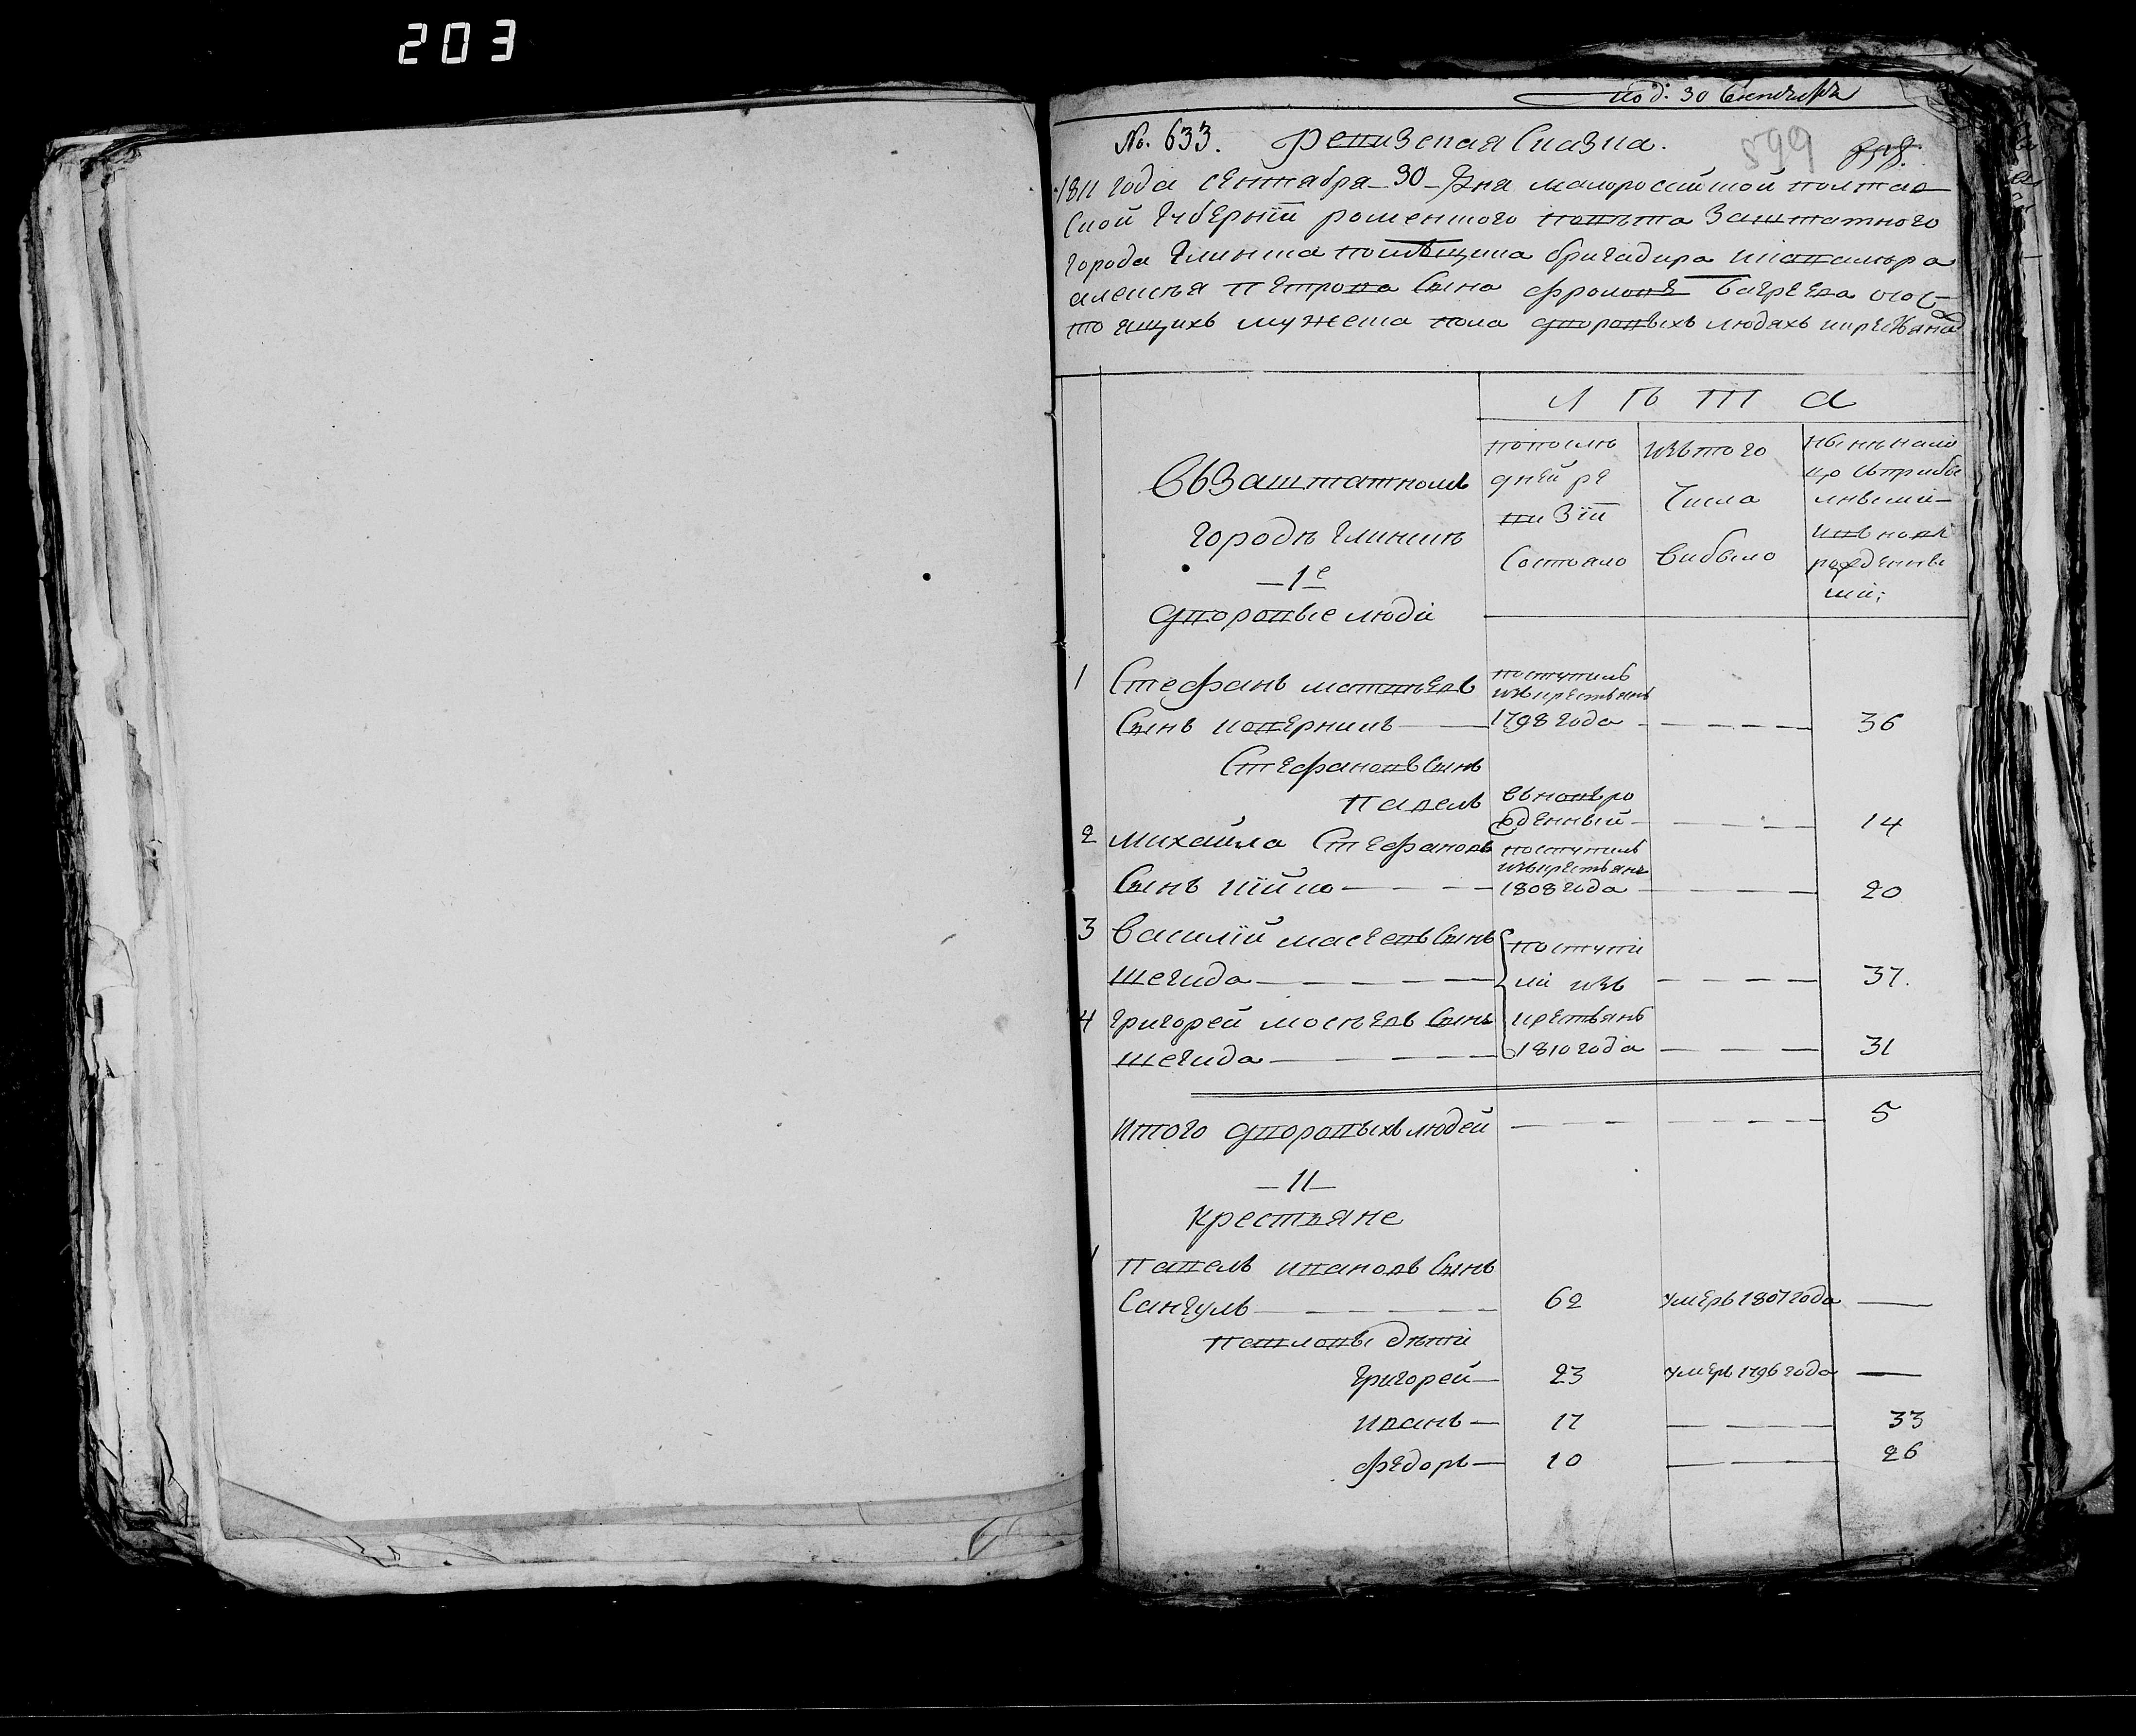 203
под. 30 Сентября
№. 633. Ревизская Сказка. 599
1811 года сентября 30 дня малороссийской полтав
ской губернїи роменского повѣта Заштатного
города Глинска помѣщика бригадира и кавалѣра
алексѣя Петрова Сына
тоящихъ мужеска пола дворовыхъ людяхъ и крестьяна
Лѣта
Въ Заштатномъ
городѣ Глинскѣ
1е
дворовые люди
попослѣ
дней ре
ви Зїи
Состояло
Изътого
Числа
выбыло
нынѣ нали
цо съприбы
лыми
и новоро
рожденны
ми;
1 Стефанъ матвѣевъ
Сынъ коверникъ
поступилъ
изъкрестьянъ
1798 года 36
Стефановъ Сынъ
Павелъ
вьновьро
жденный 14
2 Михайла Стефановъ
Сынъ
поступилъ
изъкрестьянъ
1808 года 20
3 Василїй мосѣевъ Сынъ
шегида
поступи
ли изъ 37.
4 Григорей мосѣевъ Сынъ
шегида
крестьянъ
1810 года 31
Итого дворовыхъ людей 5
II
Крестьяне
1 Павелъ ивановъ Сынъ
Сангулъ 62 умеръ 1807 года
Павловы дѣти
Григорей 23 умеръ 1796 года
Иванъ 17 33
Федоръ 10 26